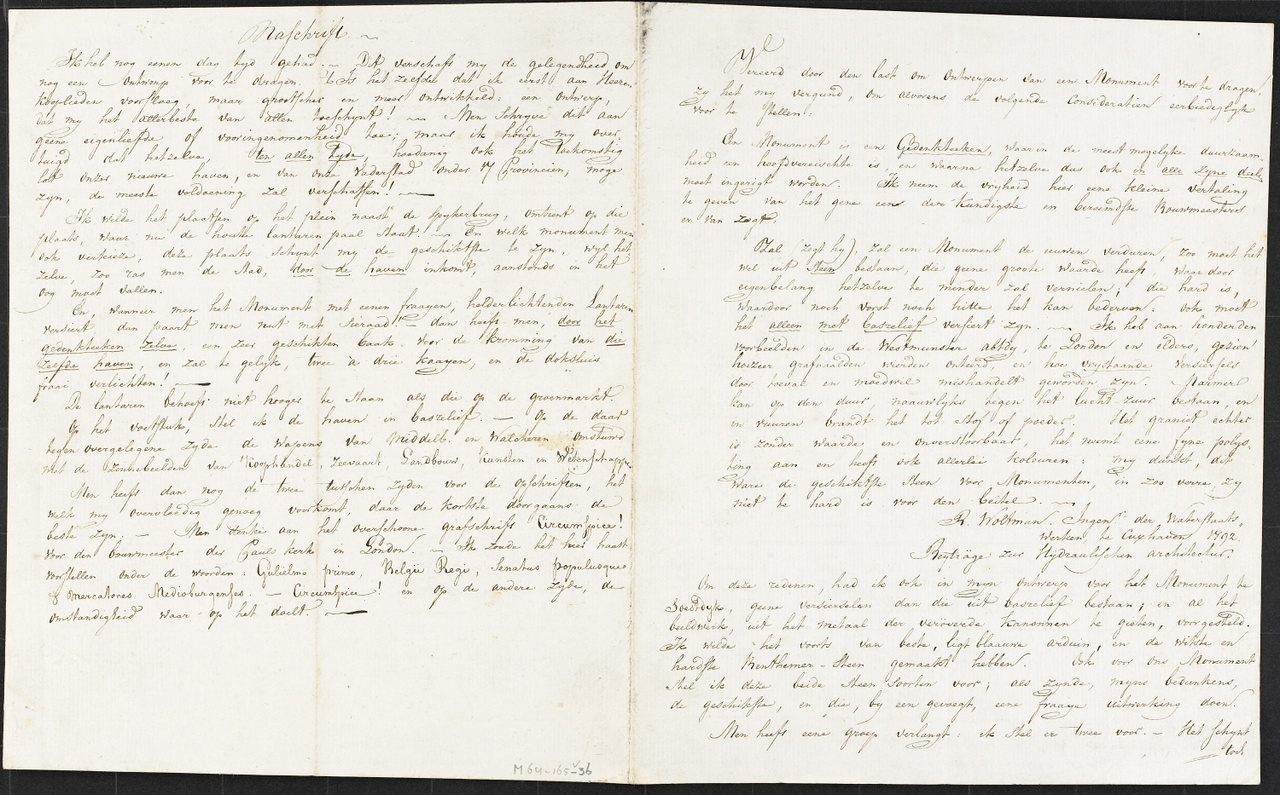 Naschrift
Ik heb nog eenen dag tyd gehad. — Dit verschaft my de gelegendheid om
nog een Ontwerp voor te dragen. 't Is het zelfde dat ik eerst aan Heeren
Kooplieden voorsloeg, maar grootscher en meer ontwikkeld: een ontwerp,
dat my het allerbeste van allen toeschynt! — Men Schryve dit aan
geene eigenliefde of vooringenomenheid toe; maar ik houde my over
tuigd dat hetzelve, ten allen tyde, hoedanig ook het toekomstig
lott onzer nieuwe haven, en van onze Vaderstad onder 17 Provincien, moge
zyn, de meeste voldoening zal verschaffen! —
Ik wilde het plaatsen op het plein naast de Spykerbrug, omtrent op die
plaats, waar nu de houten lantaren paal staat — En welk monument men
ook verkieze, deze plaats schynt my de geschiktste te zyn, wyl het
zelve, zoo ras men de Stad, door de haven inkomt, aanstonds in het
oog moet vallen.
En, wanneer men het Monument met eenen fraayen, helderlichtenden Lantaren
versiert, dan paart men nut met Sieraad! — dan heeft men, door het
gedenkteeken zelve, een zeer geschikten baak voor de kromming van die
zelfde haven, en zal te gelijk, twee à drie kaayen, en de doksluis
fraai verlichten! —
De lantaren behoeft niet hooger te staan als die op de groenmarkt
Op het voetstuk, stel ik de haven in basrelief. — Op de daar
tegen overgelegene zyde de Wapens van Middelb. en Walcheren omstuwd
met de zinnebeelden van Koophandel, Zeevaart, Landbouw, Kunsten en Wetenschappen
Men heeft dan nog de twee tusschen zyden voor de opschriften, het
welk my overvloedig genoeg voorkomt, daar de kortste doorgaans de
beste zyn. — Men denke aan het overschoone grafschrift Circumspice!
voor den bouwmeester der Pauls kerk in London. — Ik zoude het hier haast
voorstellen onder de woorden: Gulielmo primo, Belgii Regi, Senatus populusque
& mercatores Medioburgenses. — Circumspice! en op de andere zyde, de
omstandigheid waar op het doelt. —
M64-165V-36
Vereerd door den last om Ontwerpen van een Monument voor te dragen,
zy het my vergund, om alvorens de volgende Consideratien eerbiediglyk
voor te stellen:
Een Monument is een Gedenkteeken, waarin de meest mogelyke duurzaam-
heid een hoofdvereischte is, en waarna hetzelve dus ook in alle zyne deelen
moet ingerigt worden. Ik neem de vryheid hier eene kleine vertaling
te geven van het gene een der kundigste en beroemdste Bouwmeesters
er van zegt.
Zal (zegt hy), zal een Monument de eeuwen verduren, zoo moet het
wel uit steen bestaan, die geene groote waarde heeft, waar door
eigenbelang hetzelve te minder zal vernielen; die hard is,
waardoor noch vorst noch hitte het kan bederven. Ook moet
het alleen met basrelief versiert zyn. — Ik heb aan honderden
voorbeelden in de Westmunster abtdy, te London en elders, gezien
hoezeer grafnaalden worden onteerd, en hoe vrystaande versiersels
door toeval en moedwil mishandelt geworden zyn. Marmer
kan op den duur, naauwlyks tegen het lucht zuur bestaan, en
in vuuren brandt het tot stof of poeder. Het graniet echter
is zonder waarde en onverstoorbaar, het neemt eene fyne polys,
ting aan en heeft ook allerlei kolouren: my dunkt, dit
ware de geschiktste steen voor Monumenten, in zoo verre, zy
niet te hard is voor den beitel. —
R. Woltman. Ingenr. der Waterstaats,
Werken, te Cuxhaven 1792.
Beyträge zur Hydraulischen architectur.
Om deze redenen, had ik ook in myn ontwerp voor het Monument te
Soestdyk, geene versierselen dan die uit basrelief bestaan; en al het
beeldwerk, uit het metaal der veroverde kanonnen te gieten, voorgesteld.
Ik wilde het voorts van beste, ligt blaauwe arduin, en de witste en
hardste Benthemer-Steen gemaakt hebben. Ook voor ons Monument
stel ik deze beide steen soorten voor; als zynde, myns bedunkens,
de geschikste, en die, by een gevoegt, eene fraaye uitwerking doen.
Men heeft eene Groep verlangt: ik stel er twee voor. — Het schynt
toch